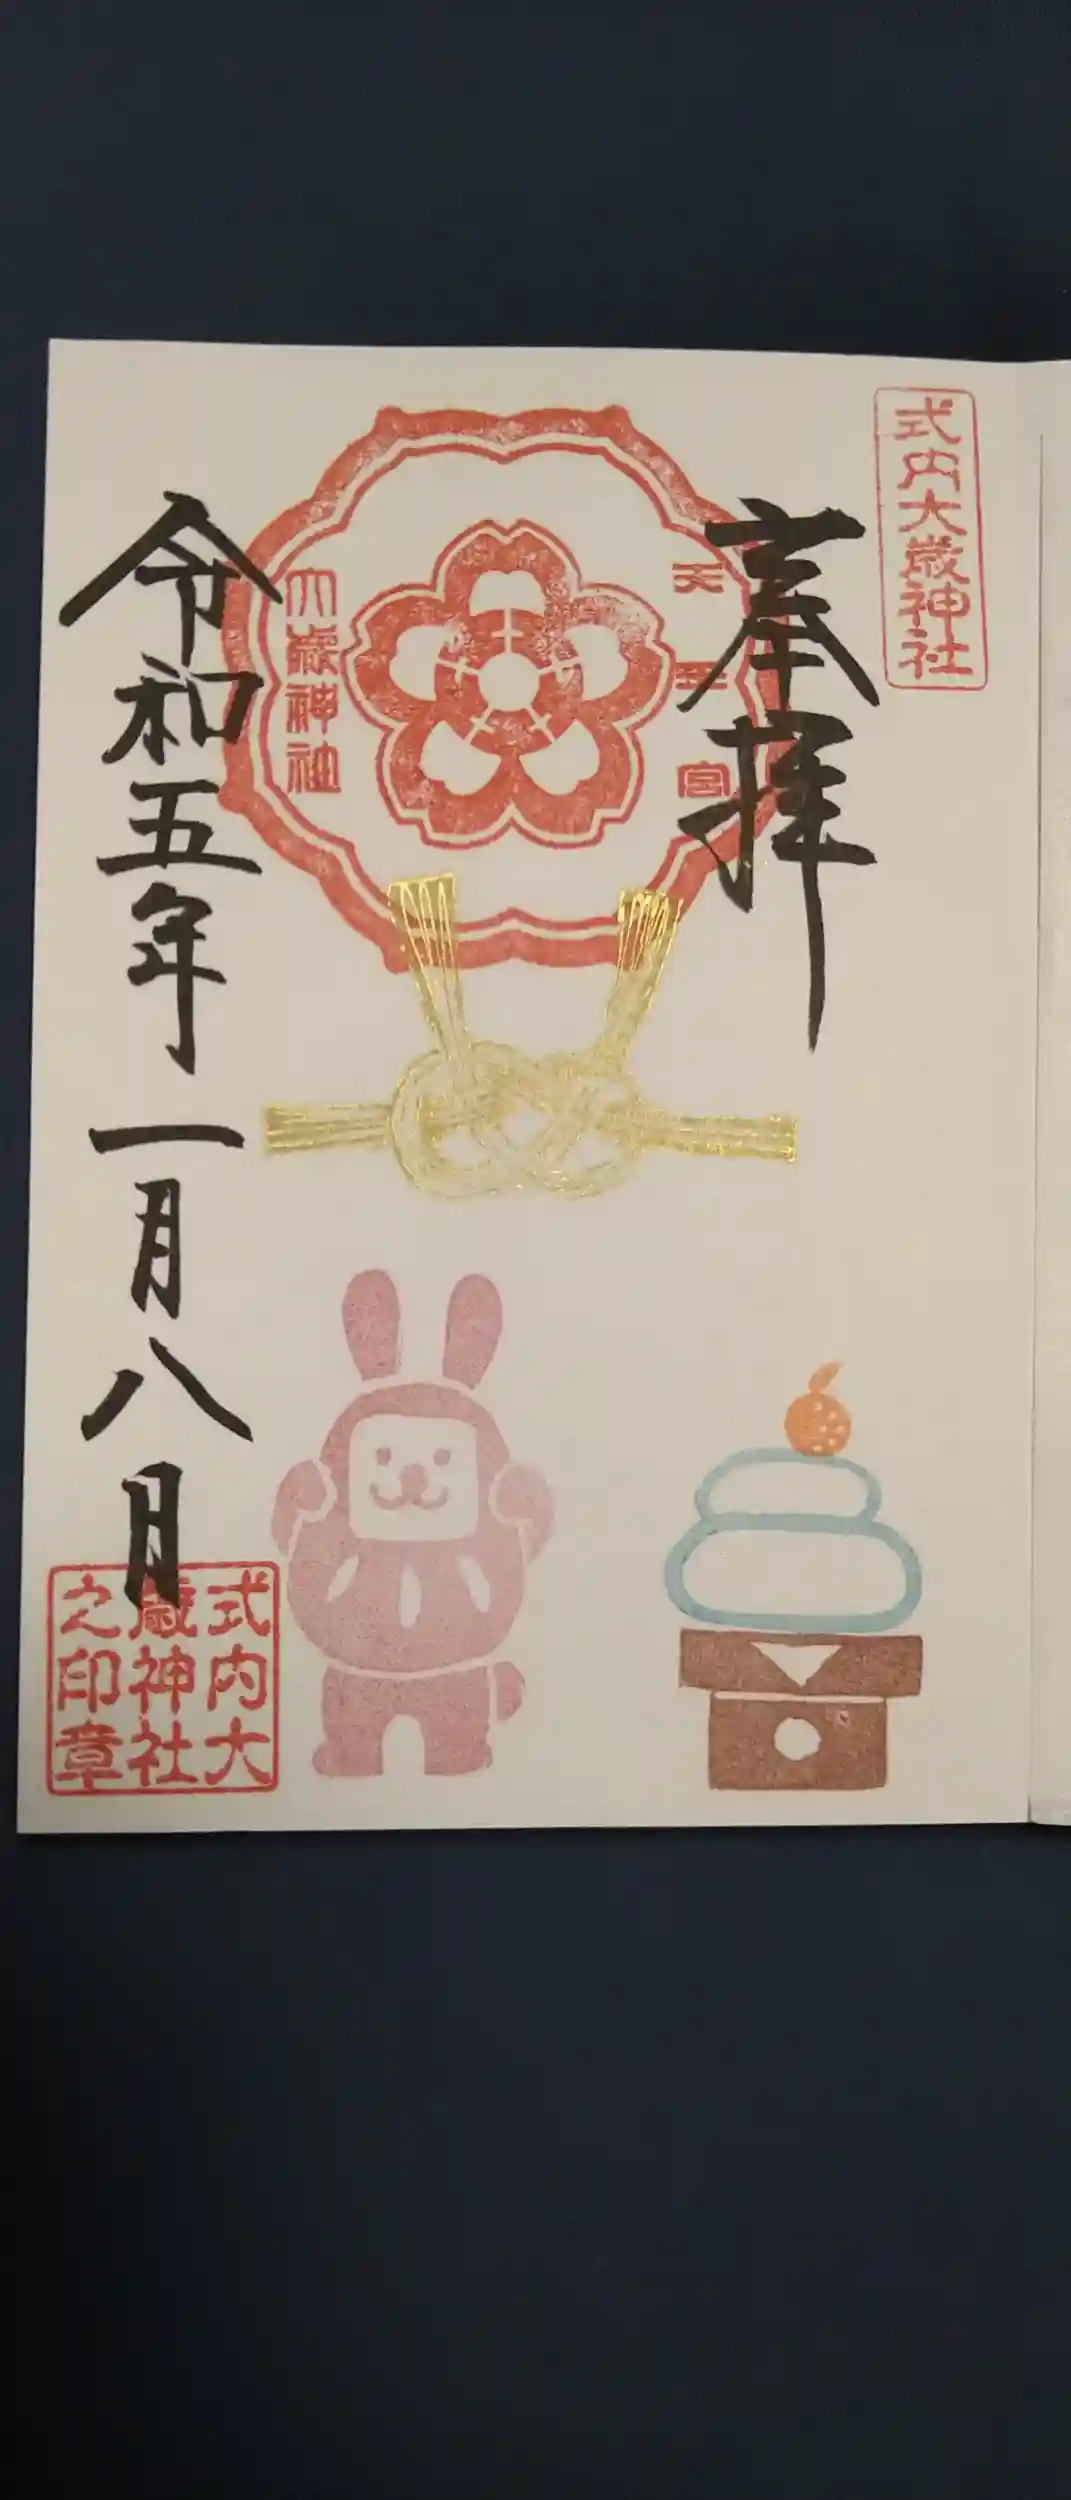 式内大歳神社
奉拝
天王宮
大歳神社
令和五年一月八日
式内大
歳神社
之印章